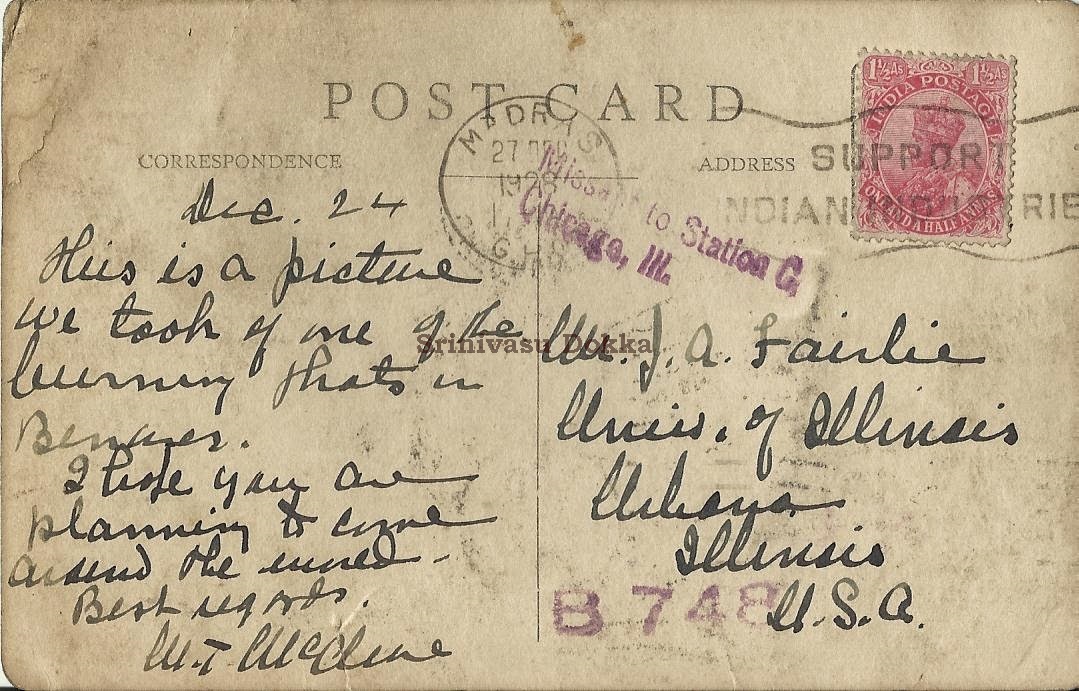 POST CARD
CORRESPONDENCE
ADDRESS
1½As 1½As
INDIA POSTAGE
ONE AND A HALF ANNAS
MADRAS
27 DEC
1928
G.P.O.
SUPPORT
INDIAN INDUSTRIES
Missent to Station C.
Chicago, Ill.
Dec. 24
This is a picture
we took of one of the
burning ghats in
Benares.
I hope you are
planning to come
around the world.
Best regards.
Srinivasu Dokka
Mr. J. A. Fairlie
Univ. of Illinois
Urbana
Illinois
U.S.A.
B 748